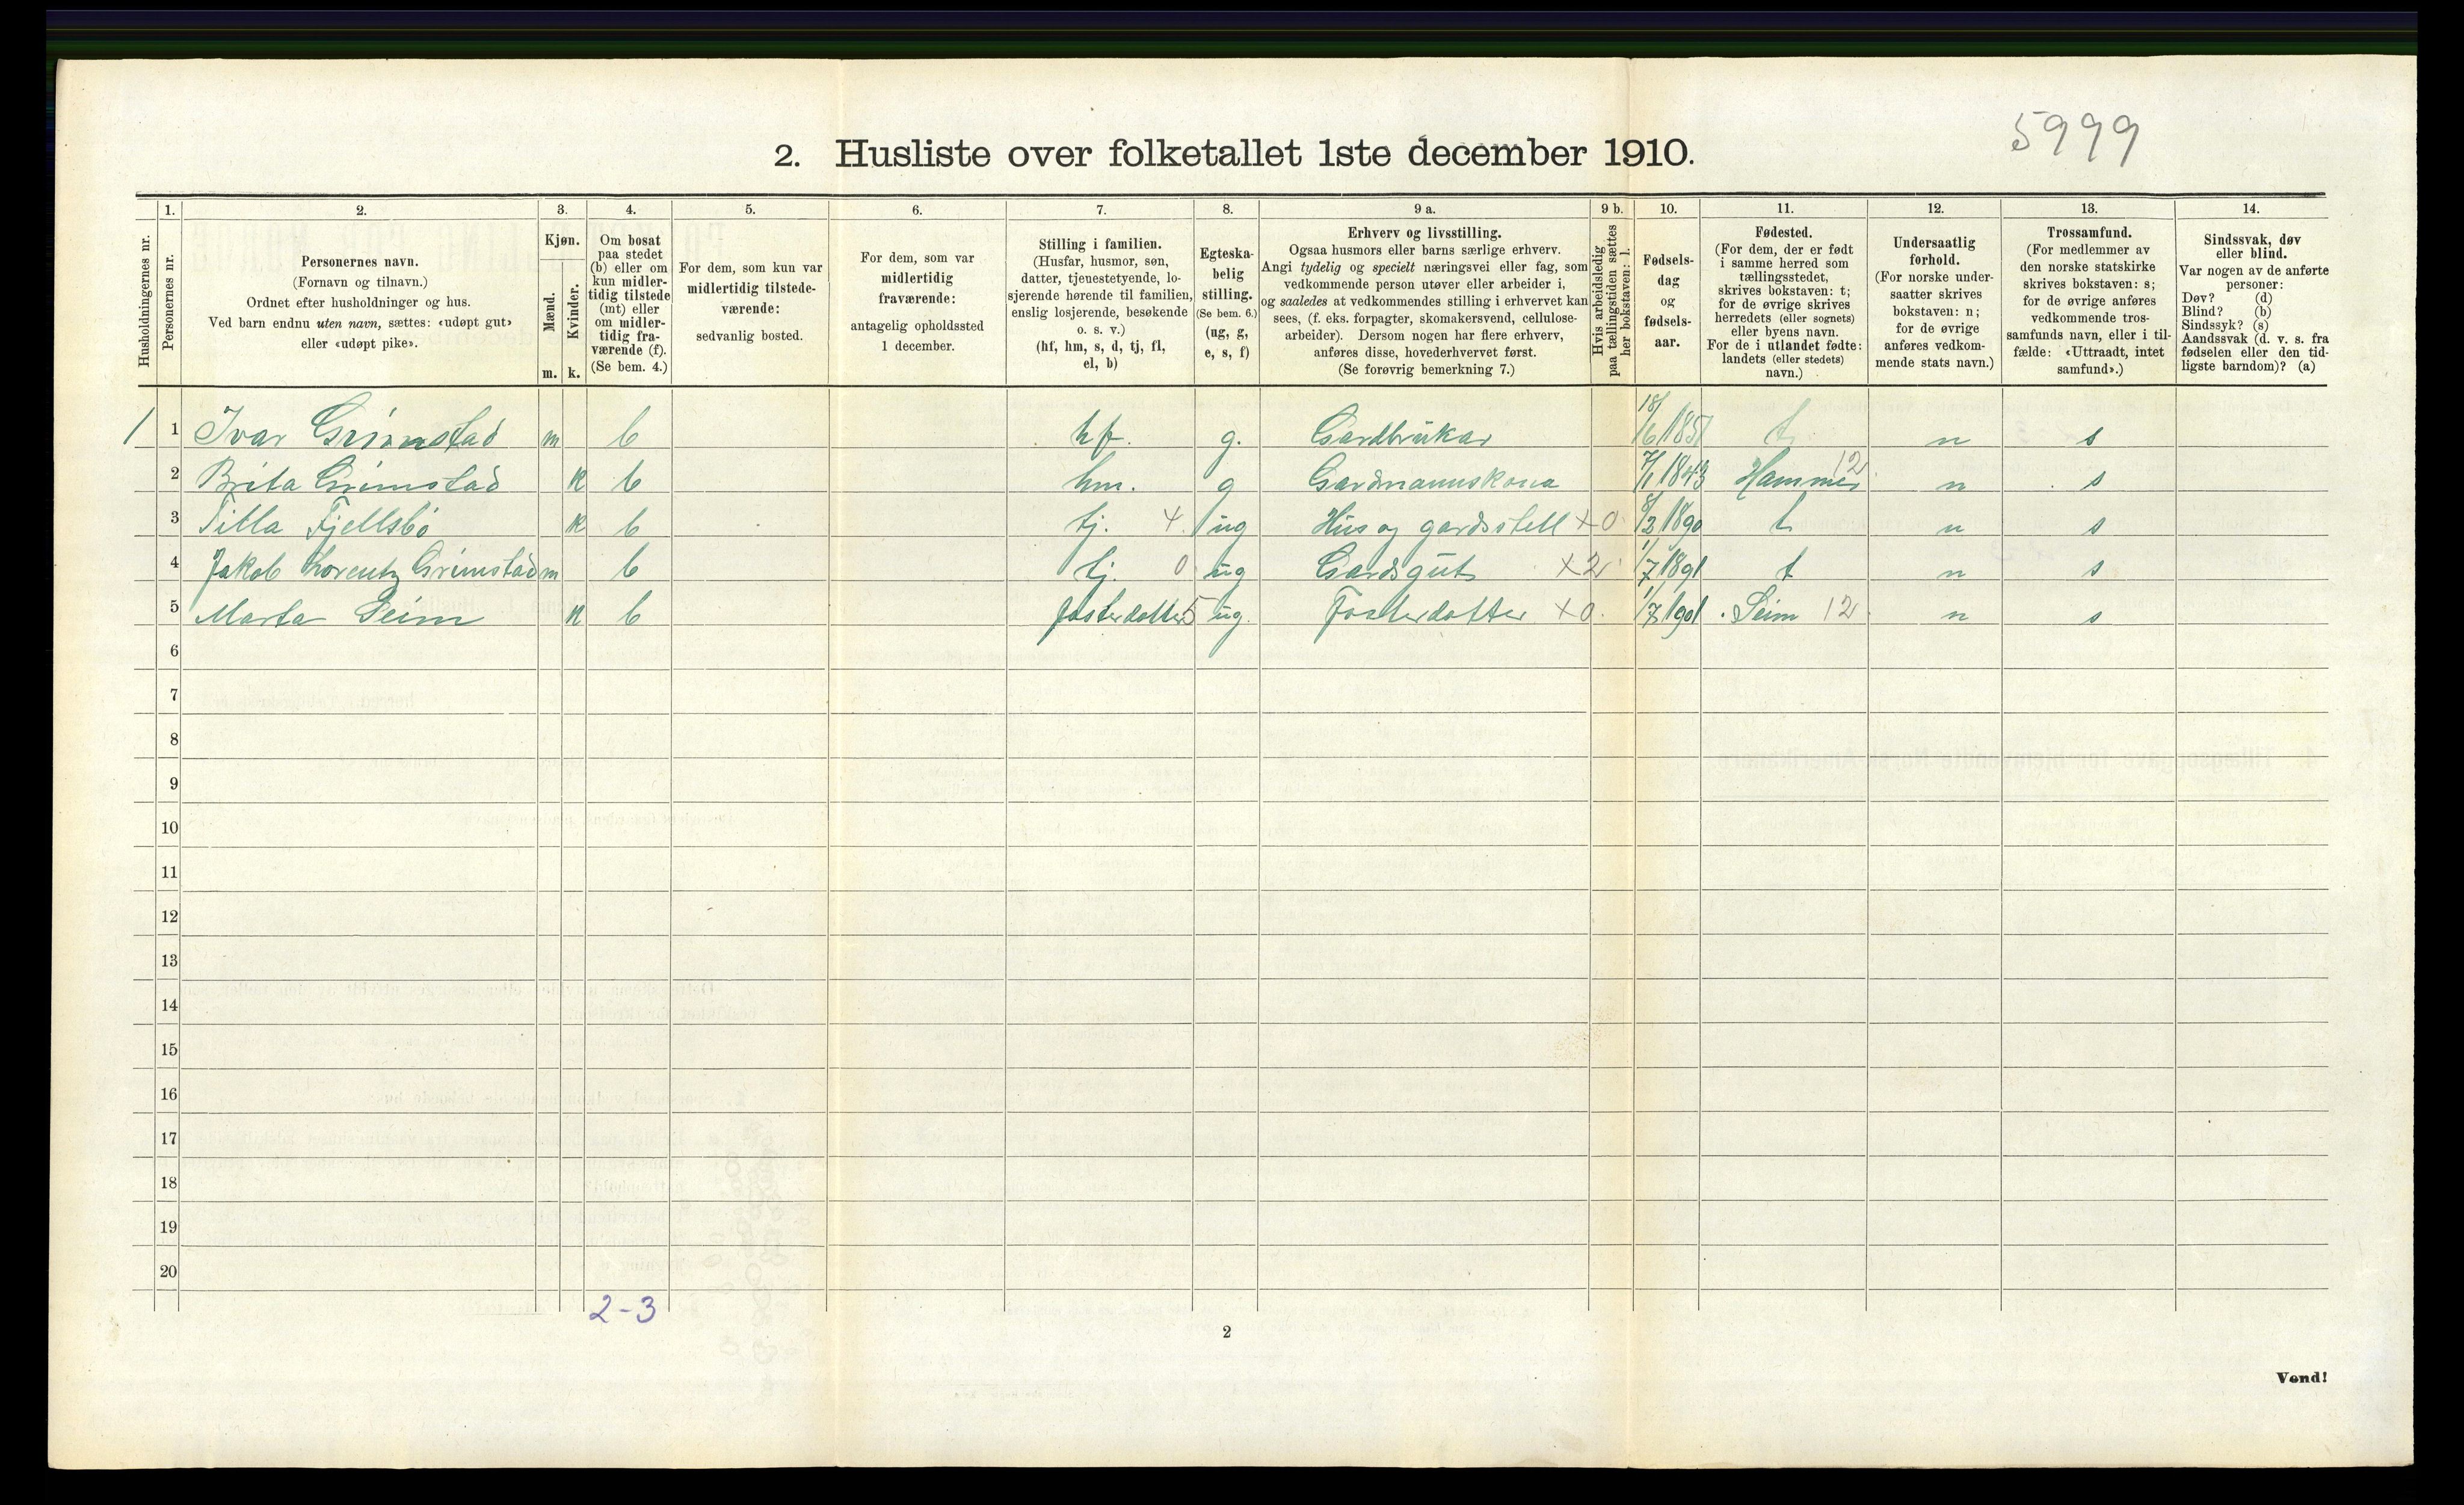 5999
2. Husliste over folketallet 1ste december 1910.
Husholdningernes nr.
1.
Personernes nr.
2.
Personernes navn.
(Fornavn og tilnavn.)
Ordnet efter husholdninger og hus.
Ved barn endnu uten navn, sættes: «udøpt gut»
eller «udøpt pike».
3.
Kjøn.
Mænd.
Kvinder.
m. k.
4.
Om bosat
paa stedet
(b) eller om
kun midler-
tidig tilstede
(mt) eller
om midler-
tidig fra-
værende (f).
(Se bem. 4.)
5.
For dem, som kun var
midlertidig tilstede-
værende:
sedvanlig bosted.
6.
For dem, som var
midlertidig
fraværende:
antagelig opholdssted
1 december.
7.
Stilling i familien.
(Husfar, husmor, søn,
datter, tjenestetyende, lo-
sjerende hørende til familien,
enslig losjerende, besøkende
o. s. v.)
(hf, hm, s, d, tj, fl,
el, b)
8.
Egteska-
belig
stilling.
(Se bem. 6.)
(ug, g,
e, s, f)
9 a.
Erhverv og livsstilling.
Ogsaa husmors eller barns særlige erhverv.
Angi tydelig og specielt næringsvei eller fag, som
vedkommende person utøver eller arbeider i,
og saaledes at vedkommendes stilling i erhvervet kan
sees, (f. eks. forpagter, skomakersvend, cellulose-
arbeider). Dersom nogen har flere erhverv,
anføres disse, hovederhvervet først.
(Se forøvrig bemerkning 7.)
9 b.
Hvis arbeidsledig
paa tællingstiden sættes
her bokstaven: l.
10.
Fødsels-
dag
og
fødsels-
aar.
11.
Fødested.
(For dem, der er født
i samme herred som
tællingsstedet,
skrives bokstaven: t;
for de øvrige skrives
herredets (eller sognets)
eller byens navn.
For de i utlandet fødte:
landets (eller stedets)
navn.)
12.
Undersaatlig
forhold.
(For norske under-
saatter skrives
bokstaven: n;
for de øvrige
anføres vedkom-
mende stats navn.)
13.
Trossamfund.
(For medlemmer av
den norske statskirke
skrives bokstaven: s;
for de øvrige anføres
vedkommende tros-
samfunds navn, eller i til-
fælde: «Uttraadt, intet
samfund».)
14.
Sindssvak, døv
eller blind.
Var nogen av de anførte
personer:
Døv? (d)
Blind? (b)
Sindssyk? (s)
Aandssvak (d. v. s. fra
fødselen eller den tid-
ligste barndom)? (a)
1 1 Ivar Grimstad m b hf. g. Gardbrukar 18/6 1851 t n s
2 Brita Grimstad k b hm. g Gardmannskona 7/1 1843 Hammer 12 n s
3 Tilla Fjellsbø k b tj. 4 ug Hus og gardsstell x0 8/3 1890 t n s
4 Jakob Lorentz Grimstad m b tj. 0 ug Gardsgut x2 1/7 1891 t n s
5 Marta Seim k b fosterdotter 5 ug. Fosterdotter x0. 1/7 1901 Seim 12 n s
6
7
8
9
10
11
12
13
14
15
16
17
18
19
20
2-3
2
Vend!